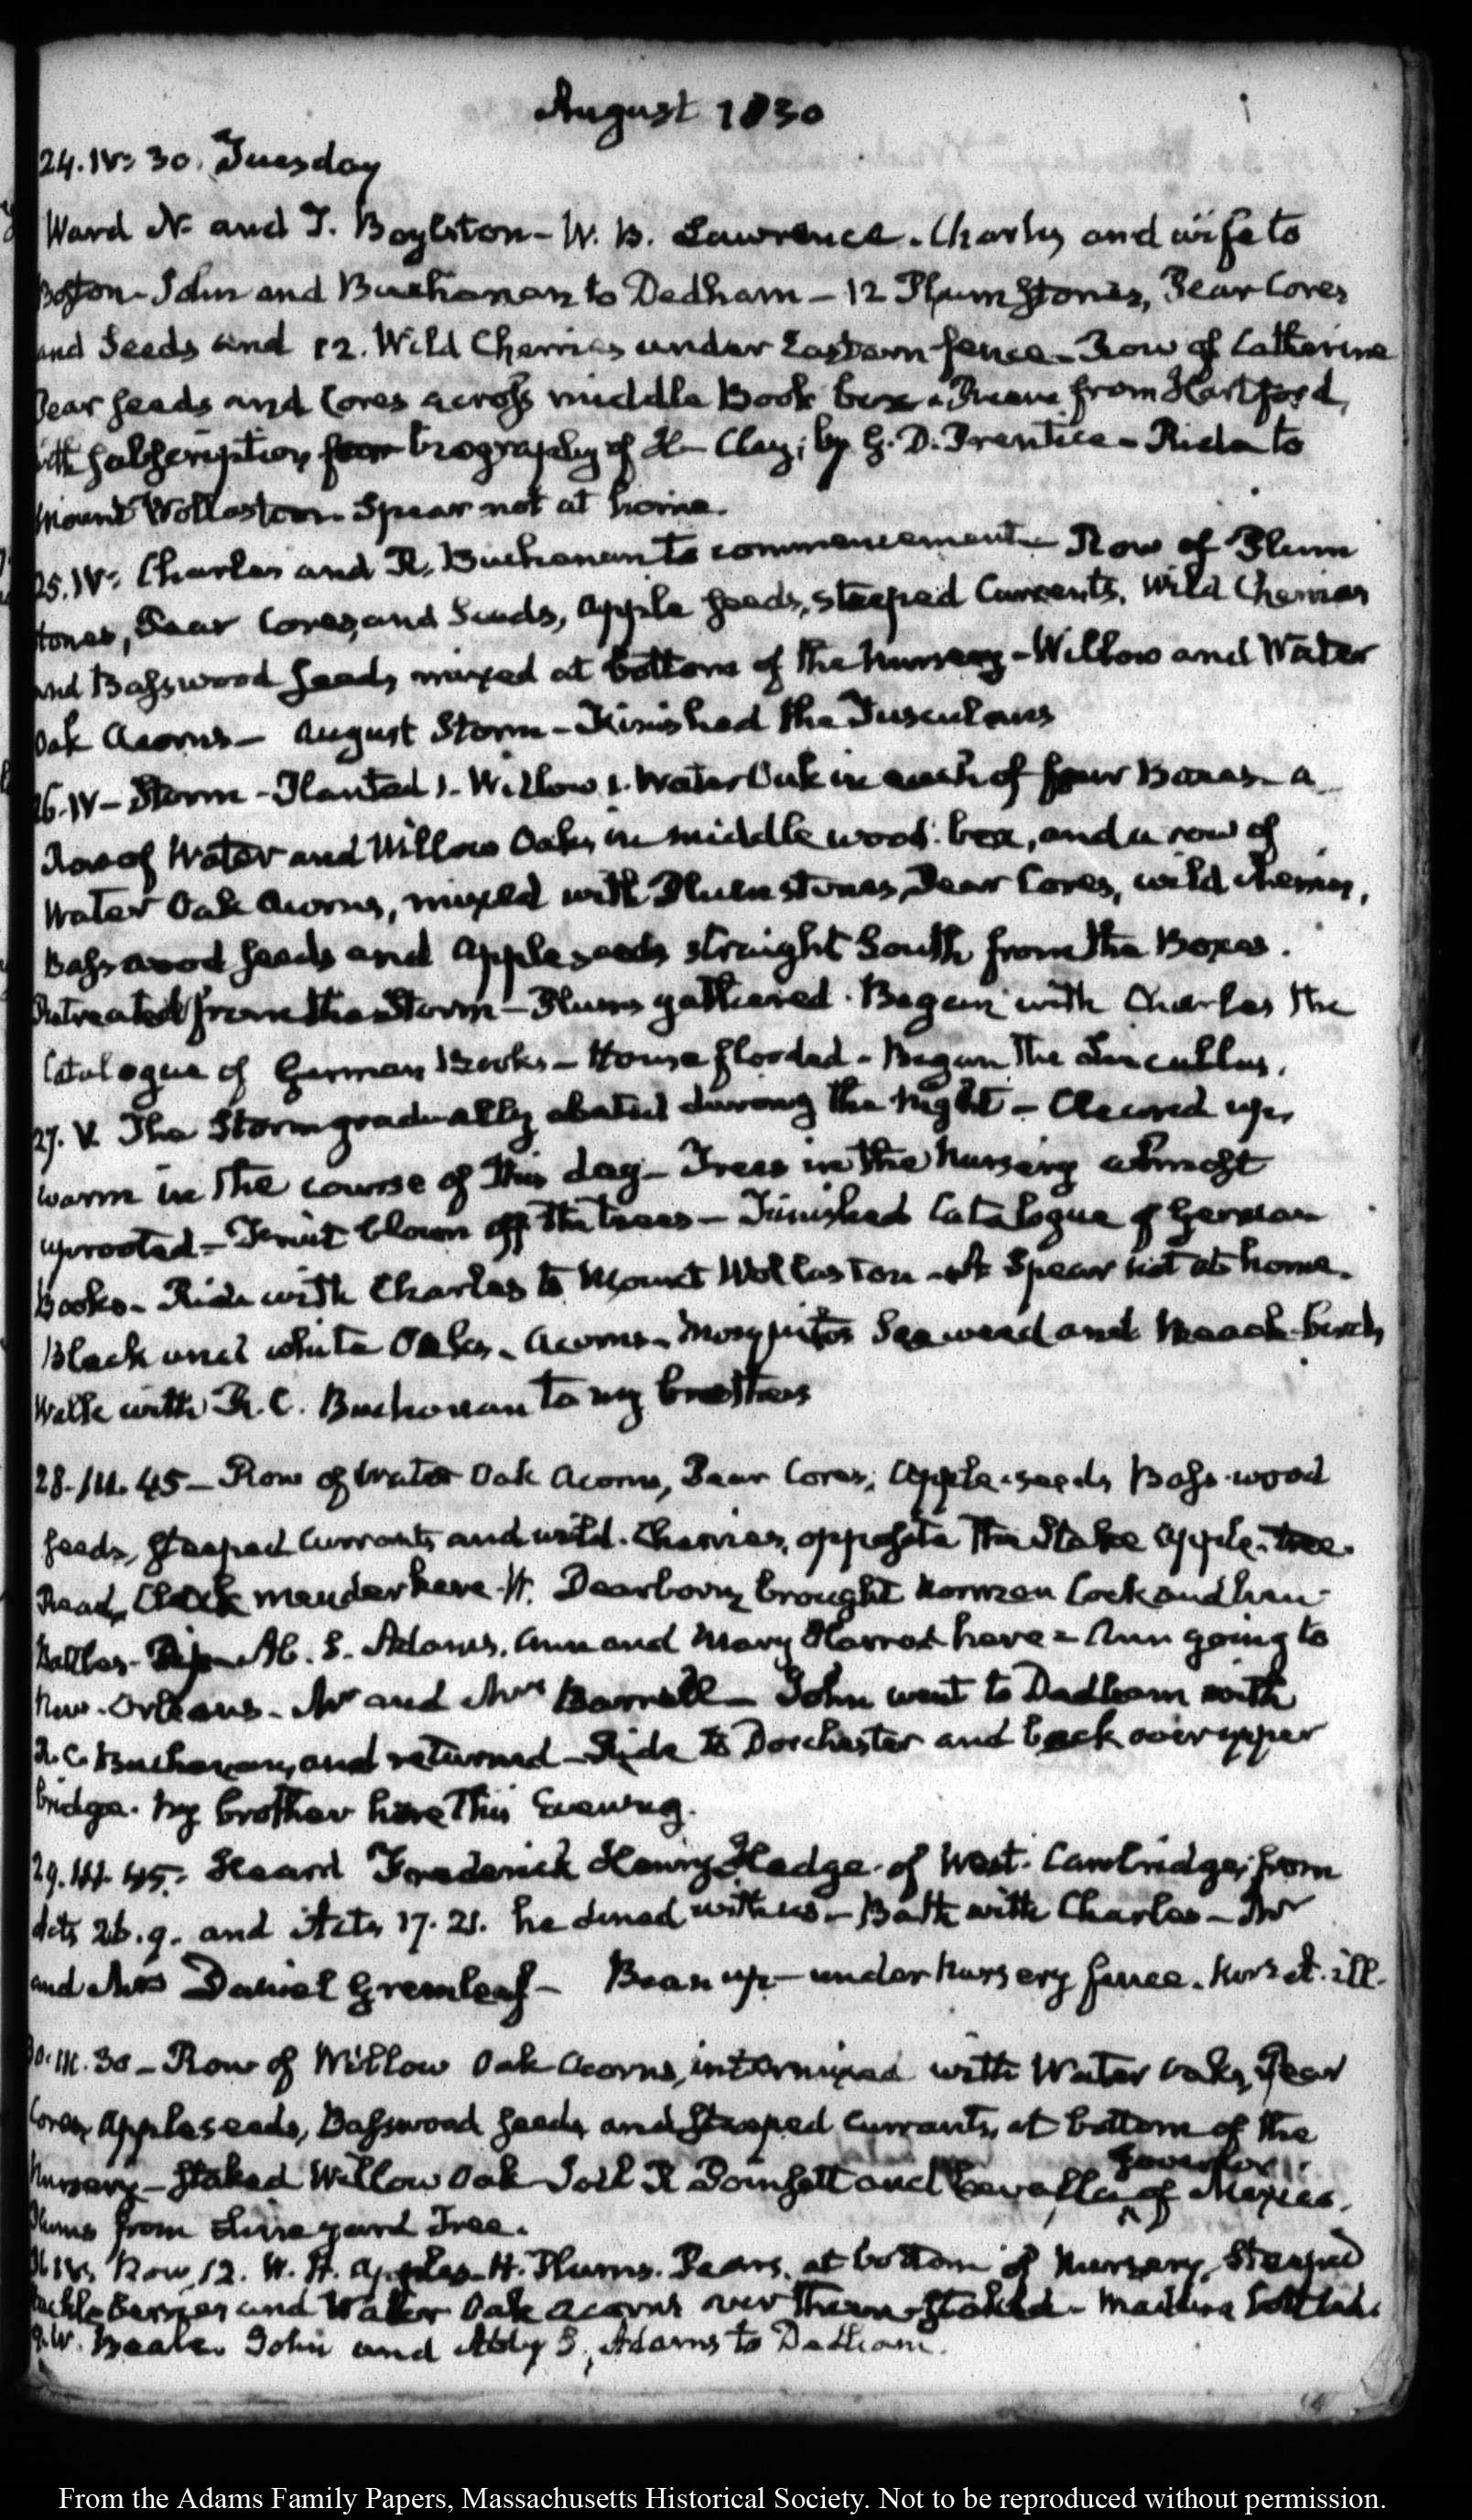 August 1830
24. IV: 30. Tuesday
Ward N. and T. Boylston - W. B. Lawrence. Charles and wife to
Boston - John and Buchanan to Dedham - 12 Plum Stones, Pear Cores
and Seeds and 12. Wild Cherries under Eastern fence - Row of Catherine
Pear seeds and Cores across middle Book box - from Hartford,
with subscription for biography of H- Clay; by G. D. Prentice - Ride to
Mount Wollaston. Spear not at home.
25. IV: Charles and R. Buchanan to commencement - Row of Plum
stones, Pear Cores, and Seeds, apple seeds, steeped Currants, Wild Cherries
and Basswood seeds, mixed at bottom of the Nursery - Willow and Water
Oak Acorns - August Storm - Finished the Tusculans
26. IV - Storm - Planted 1. Willow 1. Water Oak in each of four Boxes - a
Row of Water and Willow Oaks, in middle wood box, and a row of
Water Oak Acorns, mixed with Plum stones, Pear Cores, wild cherries,
Basswood seeds and apple seeds straight South from the Boxes.
Retreated from the Storm - Plums gathered. Began with Charles the
Catalogue of German Books - House flooded - Began the Lucullus.
27. V. The Storm gradually abated during the night - Cleared up,
warm in the course of this day - Trees in the Nursery almost
uprooted - Fruit blown off the trees - Finished Catalogue of German
Books - Ride with Charles to Mount Wollaston - Spear not at home.
Black and white Oaks. Acorns - Mosquitos Seaweed and
Walk with R. C. Buchanan to my brothers
28. III. 45 - Row of Water Oak Acorns, Pear Cores, Apple-seeds Bass-wood
seeds, steeped Currants and wild Cherries, opposite the Stake Apple-tree.
Read, Clock mender here. H. Dearborn brought Norman Cock and hen
Ab. S. Adams, Ann and Mary Harrod here - Ann going to
New-Orleans - Mr and Mrs Barrell - John went to Dedham with
R. C. Buchanan, and returned - Ride to Dorchester and back over upper
bridge. My brother here this Evening.
29. III. 45. Heard Frederick Henry Hedge of West-Cambridge, from
Acts 26. 9. and Acts 17. 21. he dined with us - Bath with Charles - Mr
and Mrs Daniel Greenleaf - Bean up - under nursery fence. ill.
30. III. 30 - Row of Willow Oak Acorns, intermixed with Water Oaks, Pear
Cores, Appleseeds, Basswood seeds and steeped Currants, at bottom of the
Nursery - Staked Willow Oak Joel R Poinsett and Governor of Mexico.
Plums from tree.
31. IV. Row, 12. W. H. Apples - H. Plums. Pears, at bottom of Nursery, Steeped
Huckleberries and Water Oak acorns over them - Staked -
G. W. Beale. John and Abby S. Adams to Dedham.
From the Adams Family Papers, Massachusetts Historical Society. Not to be reproduced without permission.